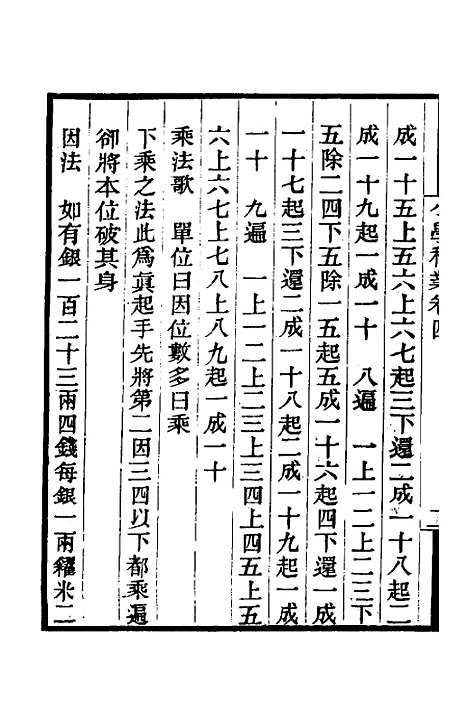 成一十五上五六上六七起三下還二成一十八起二
成一十九起一成一十　八遍　一上一二上二三下
五除二四下五除一五起五成一十六起四下還一成
一十七起三下還二成一十八起二成一十九起一成
一十　九遍　一上一二上二三上三四上四五上五
六上六七上七八上八九起一成一十
乘法歌　單位曰因位數多曰乘
下乘之法此爲眞起手先將第二因三四以下都乘遍
卻將本位破其身
因法　如有銀一百二十三兩四錢每銀一兩糴米二